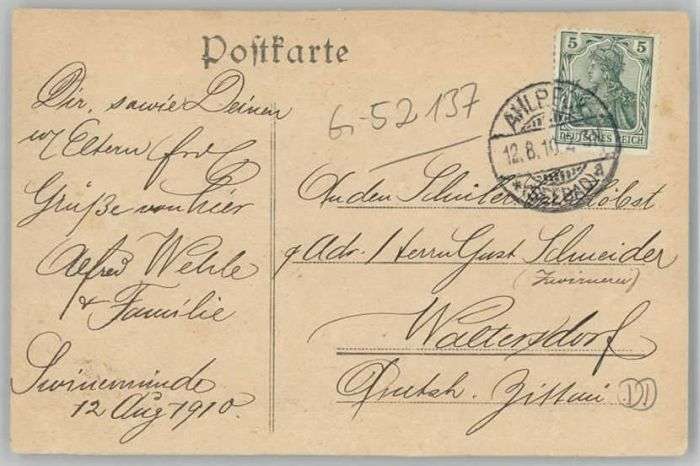 Postkarte
5 5
DEUTSCHES REICH
AHLBECK
12.8.10.
* (SEEBAD) *
G-52137
Dir, sowie Deinen
w/ Eltern frdl.
Grüße von hier
Alfred Wehle
& Familie
Swinemünde
12 Aug 1910.
An den Schüler
p Adr. / Herrn Gust Schneider
(Zwirnerei)
Waltersdorf
Zittau